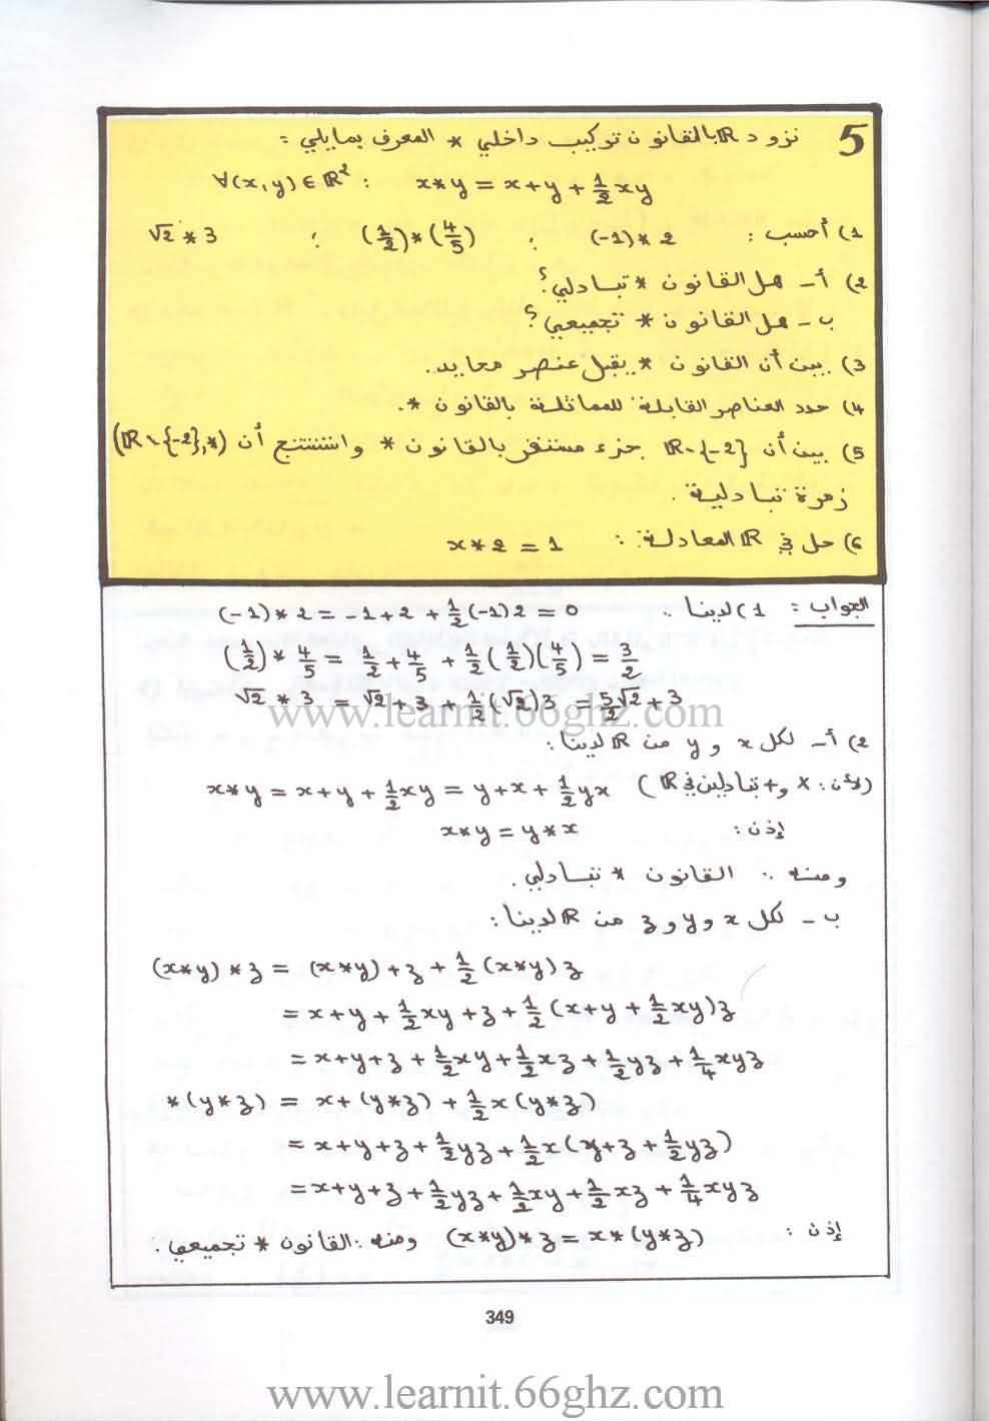 5 نزود ℝ بالقانون تركيب داخلي * المعرف بمايلي :
∀(x,y) ∈ ℝ² : x*y = x+y+½xy
1) أحسب : (-1)*2 ; (½)*(4/5) ; √2 * 3
2) أ - هل القانون * تبادلي؟
ب - هل القانون * تجميعي؟
3) بين أن القانون * يقبل عنصر محايد.
4) حدد العناصر القابلة للمماثلة بالقانون *.
5) بين أن ℝ-{-2} جزء مستقر بالقانون * واستنتج أن (ℝ\{-2},*)
زمرة تبادلية .
6) حل في ℝ المعادلة : x*2 = 1
الجواب : 1) لدينا : (-1)*2 = -1+2+½(-1)2 = 0
(½)*4/5 = ½+4/5+½(½)(4/5) = 3/2
√2 * 3 = √2+3+½(√2)3 = 5/2√2+3
www.learnit.66ghz.com
2) أ - لكل x و y من ℝ لدينا :
x*y = x+y+½xy = y+x+½yx (لأن : × و + تبادليين في ℝ)
إذن : x*y = y*x
ومنه : القانون * تبادلي .
ب - لكل x و y و z من ℝ لدينا :
(x*y)*z = (x*y)+z+½(x*y)z
= x+y+½xy+z+½(x+y+½xy)z
= x+y+z+½xy+½xz+½yz+¼xyz
*(y*z) = x+(y*z)+½x(y*z)
= x+y+z+½yz+½x(y+z+½yz)
= x+y+z+½yz+½xy+½xz+¼xyz
إذن : (x*y)*z = x*(y*z) ومنه : القانون * تجميعي .
349
www.learnit.66ghz.com